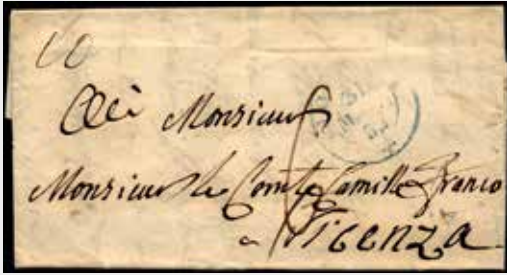 A Monsieur
Monsieur le Comte Camille Franco
a Vicenza